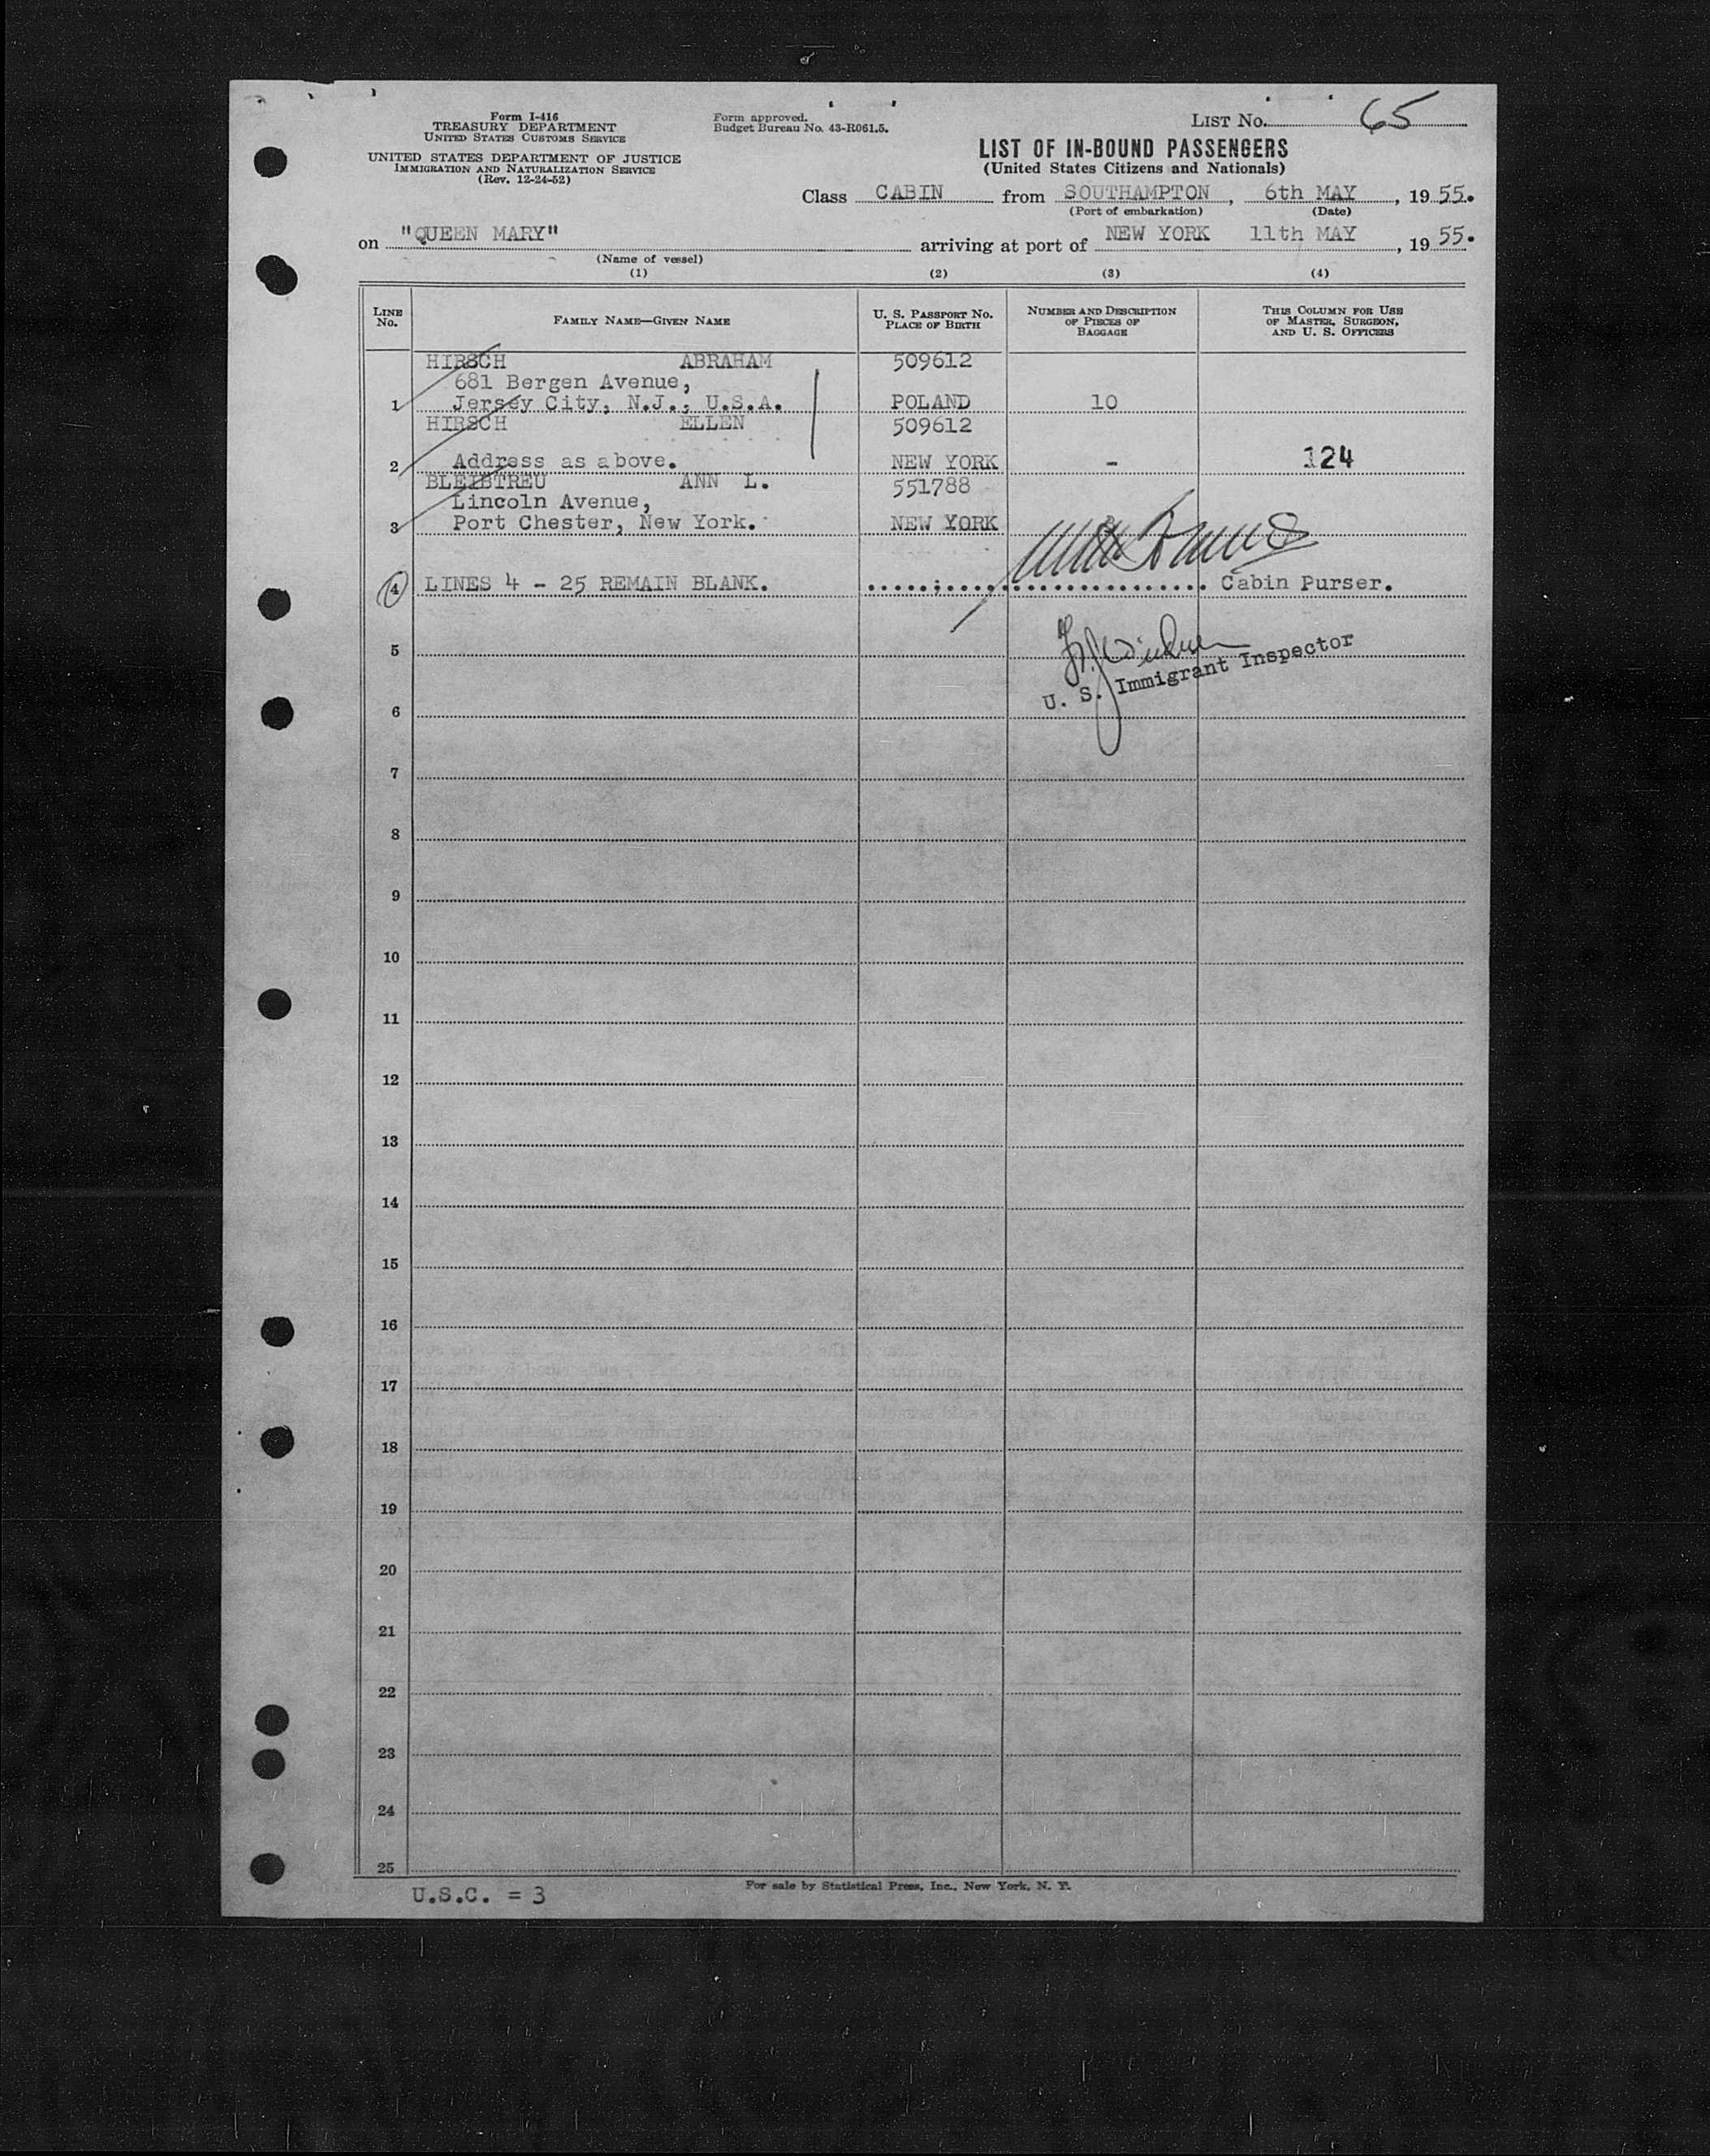 Form I-416
TREASURY DEPARTMENT
UNITED STATES CUSTOMS SERVICE
UNITED STATES DEPARTMENT OF JUSTICE
IMMIGRATION AND NATURALIZATION SERVICE
(Rev. 12-24-52)
Form approved.
Budget Bureau No. 43-R061.5.
LIST No. 65
LIST OF IN-BOUND PASSENGERS
(United States Citizens and Nationals)
Class CABIN from SOUTHAMPTON, 6th MAY, 1955.
(Port of embarkation) (Date)
on "QUEEN MARY" arriving at port of NEW YORK 11th MAY, 1955.
(Name of vessel)
(1) (2) (3) (4)
LINE No. FAMILY NAME—GIVEN NAME U. S. PASSPORT No. PLACE OF BIRTH NUMBER AND DESCRIPTION OF PIECES OF BAGGAGE THIS COLUMN FOR USE OF MASTER, SURGEON, AND U. S. OFFICERS
HIRSCH ABRAHAM 509612
681 Bergen Avenue,
1 Jersey City, N.J., U.S.A. POLAND 10
HIRSCH ELLEN 509612
2 Address as above. NEW YORK - 124
BLEIBTREU ANN L. 551788
Lincoln Avenue,
3 Port Chester, New York. NEW YORK
4 LINES 4 - 25 REMAIN BLANK. Cabin Purser.
5
U. S. Immigrant Inspector
6
7
8
9
10
11
12
13
14
15
16
17
18
19
20
21
22
23
24
25
U.S.C. = 3
For sale by Statistical Press, Inc., New York, N. Y.